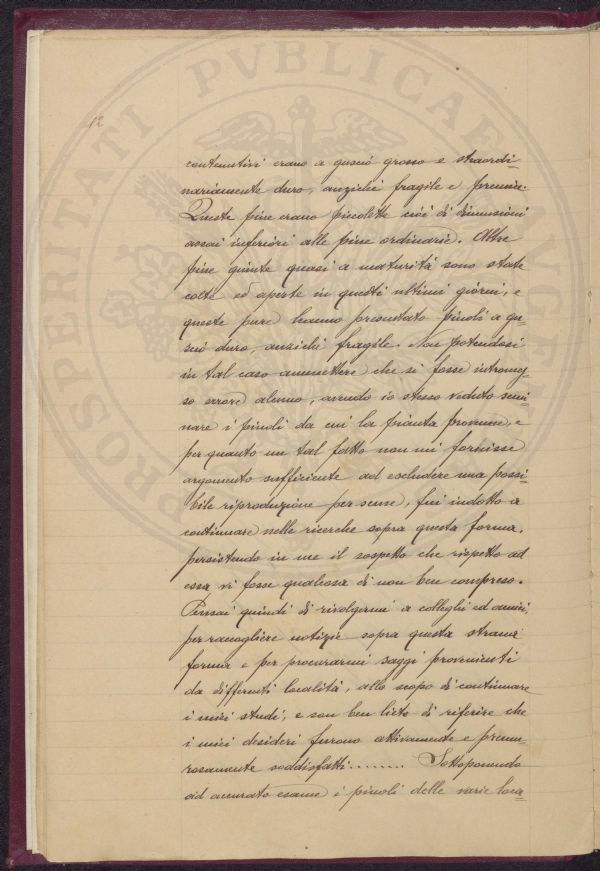 12
PROSPERITATI PVBLICAE AVGE
contenutivi erano a guscio grosso e straordi-
nariamente duro, anzichè fragile e premice.
Queste pine erano piccolette cioè di dimensioni
assai inferiori alle pine ordinarie. Altre
pine giunte quasi a maturità sono state
colte ed aperte in questi ultimi giorni, e
queste pure hanno presentato pinoli a gu-
scio duro, anzichè fragile. Non potendosi
in tal caso ammettere che si fosse intromes-
so errore alcuno, avendo io stesso veduto semi-
nare i pinoli da cui la pianta provenne, e
per quanto un tal fatto non mi fornisse
argomento sufficiente ad escludere una possi-
bile riproduzione per seme, fui indotto a
continuare nelle ricerche sopra questa forma,
persistendo in me il sospetto che rispetto ad
essa vi fosse qualcosa di non ben compreso.
Pensai quindi di rivolgermi a colleghi ed amici,
per raccogliere notizie sopra questa strana
forma e per procurarmi saggi provenienti
da differenti località, allo scopo di continuare
i miei studi, e son ben lieto di riferire che
i miei desideri furono attivamente e premu-
rosamente soddisfatti........ Sottoponendo
ad accurato esame i pinoli delle varie loca-